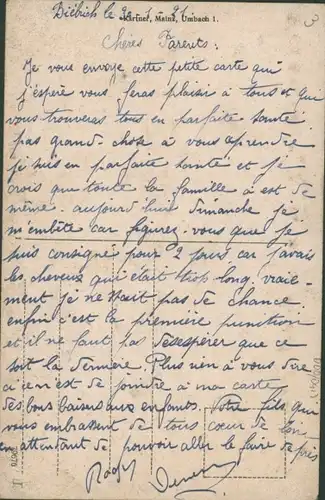 Biébrich le 30-1-21
Karfner, Mainz, Umbach 1.
Chères Parents:
Je vous envoye cette petite carte qui
j'espère vous feras plaisir à tous et qui
vous trouveras tous en parfaite santé.
pas grand-chose à vous aprendre
je suis en parfaite santé et je
crois que toute la famille à est de
même. aujourd'hui dimanche je
m'embête car figurez-vous que je
suis consigné pour 2 jours, car j'avais
les cheveux qui était trop long, vraie-
ment je ne n'ait pas de chance.
enfin c'est la première punition
et il ne faut pas désespérer que ce
soit la dernière. Plus rien à vous dire
si ce n'est de joindre à ma carte
des bons baisers aux enfants. Votre fils, qui
vous embrassent de tous cœur de loin
en attentant de pouvoir aller le faire de près
Roger